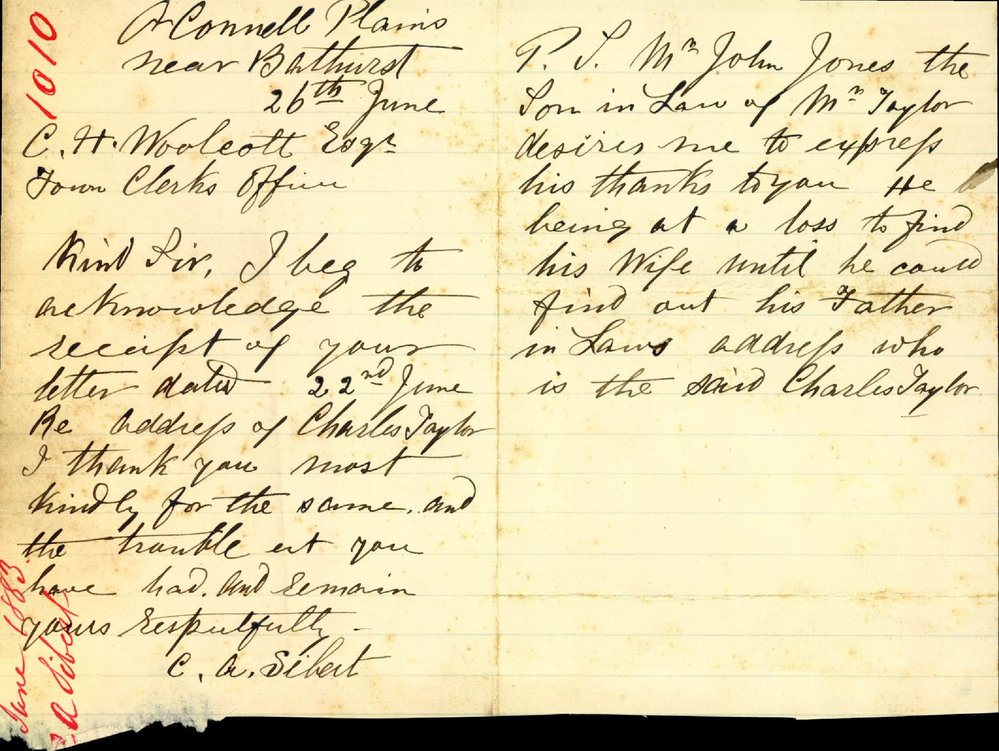 O'Connell Plains
near Bathurst
26th June
C. H. Woolcott Esqr
Town Clerks office
Kind Sir, I beg to
acknowledge the
receipt of your
letter dated 22nd June
Re address of Charles Taylor
I thank you most
kindly for the same. and
the trouble
you
have had. and remain
yours
C. A. Sibert
P. S. Mr John Jones the
Son in Law of Mr Taylor
desires me to express
his thanks to you He
being at a loss to find
his Wife until he could
find out his Father
in Laws address who
is the said Charles Taylor
1010
June 1883
A Sibert